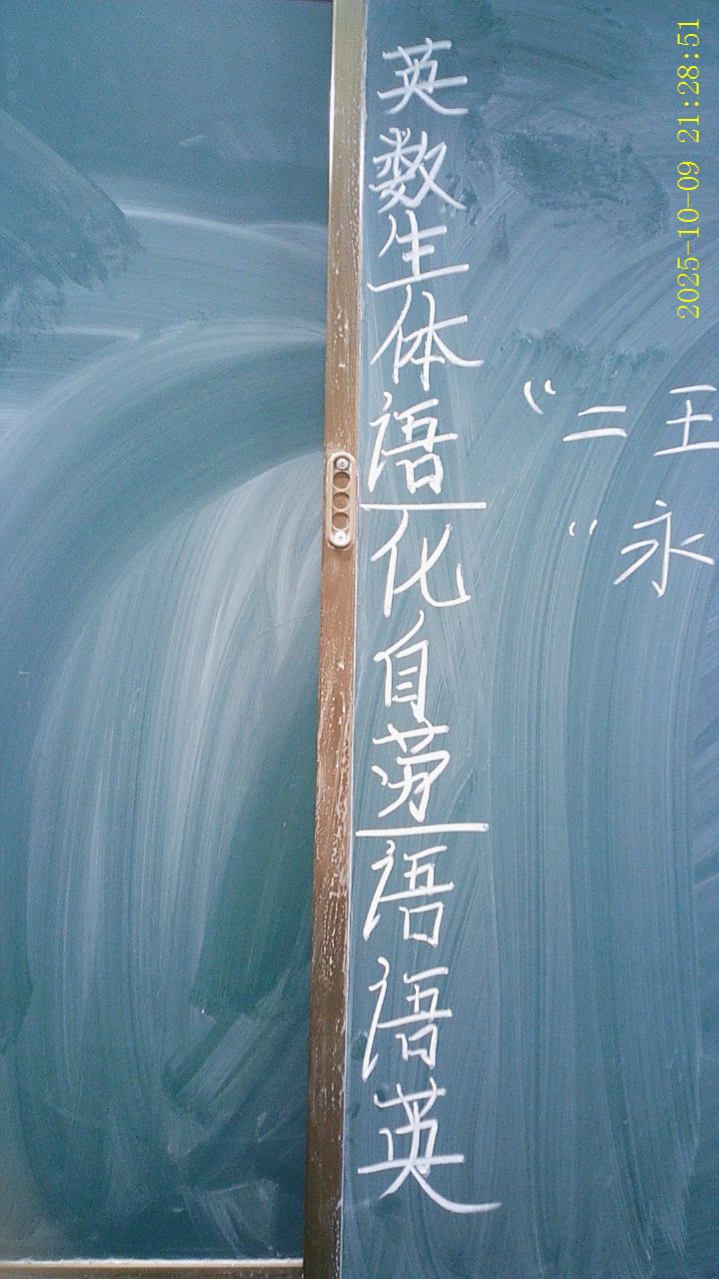 英数生体语
化自劳
语语英
“二王
“永
2025-10-09 21:28:51